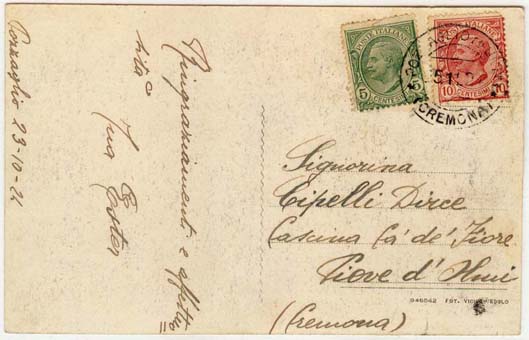 Pozzaglio 23-10-21
Ringraziamenti e affettuo
sità
Tua Ester
POSTE ITALIANE
5
CENTESIMI
10 CENTESIMI 10
(CREMONA)
Signorina
Cipelli Dirce
Cascina Cà de' Fiore
Pieve d'Olmi
(Cremona)